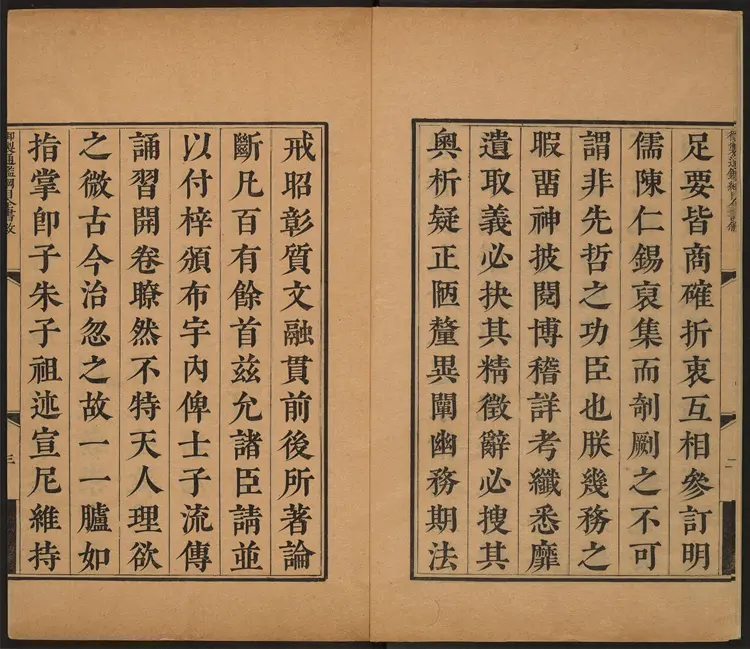 足要皆商確折衷互相參訂明
儒陳仁錫裒集而剞劂之不可
謂非先哲之功臣也朕幾務之
暇畱神披閱博稽詳考纖悉靡
遺取義必抉其精徵辭必搜其
奧析疑正陋釐異闡幽務期法
二
戒昭彰質文融貫前後所著論
斷凡百有餘首兹允諸臣請並
以付梓頒布宇內俾士子流傳
誦習開卷瞭然不特天人理欲
之微古今治忽之故一一臚如
指掌卽子朱子祖述宣尼維持
御製通鑑綱目全書敘
三